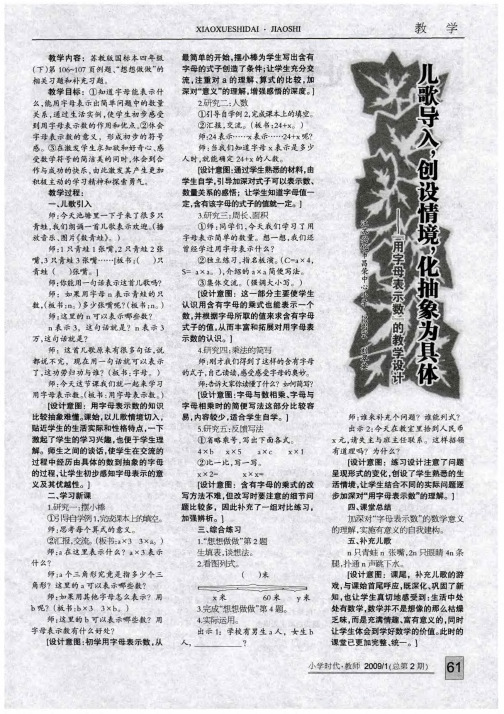 XIAOXUESHIDAI · JIAOSHI
教 学
教学内容：苏教版国标本四年级
(下)第106~107页例题,“想想做做”的
相关习题和补充习题。
教学目标：①知道字母能表示什
么,能用字母表示出简单问题中的数量
关系,通过生活实例,使学生初步感受
到用字母表示数的作用和优点。②体会
字母表示数的意义，形成初步的符号
感。③在激发学生求知欲和好奇心、感
受数学符号的简洁美的同时,体会到合
作与成功的快乐,由此激发其产生更加
积极主动的学习精神和探索勇气。
教学过程：
一、儿歌引入
师：今天池塘里一下子来了很多只
青蛙,我们朗诵一首儿歌表示欢迎。(播
放音乐、图片《数青蛙》。)
师：1只青蛙1张嘴,2只青蛙2张
嘴,3只青蛙3张嘴……[板书：( )只
青蛙( )张嘴。]
师:你能用一句话表示这首儿歌吗?
师：如果用字母n表示青蛙的只
数,(板书:n。)多少张嘴呢?(板书:n。)
师：这里的n可以表示哪些数?
n表示3，这句话就是？n表示3
万,这句话就是?
师：这首儿歌原来有很多句话，说
都说不完，现在用一句话就可以表示
了,这功劳归功与谁?(板书:字母。)
师:今天这节课我们就一起来学习
用字母表示数。(板书:用字母表示数。)
[设计意图：用字母表示数的知识
比较抽象难懂。课始,以儿歌情境切入、
贴近学生的生活实际和性格特点,一下
激起了学生的学习兴趣,也便于学生理
解。师生之间的谈话,使学生在交流的
过程中经历由具体的数到抽象的字母
的过程,让学生初步感知字母表示的意
义及其优越性。]
二、学习新课
1.研究一:摆小棒
①引导自学例1,完成课本上的填空。
师:思考每个算式的意义。
②汇报,交流。(板书:a×3 3×a。)
师:a在这里表示什么？a×3表示
什么?
师:a个三角形究竟是指多少个三
角形？这里的a可以表示哪些数?
师:如果用其他字母怎么表示？用
b呢?(板书:b×3 3×b。)
师:这里的b可以表示哪些数？用
字母表示数有什么好处?
[设计意图:初学用字母表示数,从
最简单的开始,摆小棒为学生写出含有
字母的式子创造了条件;让学生充分交
流,注重对a的理解、算式的比较,加
深对“意义”的理解,增强感悟的深度。]
2.研究二:人数
①引导自学例2,完成课本上的填空。
②汇报,交流。(板书:24+x。)
师:24表示……x表示……24+x呢?
师:当我们知道字母x表示是多少
人时,就能确定24+x的人数。
[设计意图:通过学生熟悉的材料,由
学生自学,引导加深对式子可以表示数、
数量关系的感悟；让学生知道字母值一
定,含有该字母的式子的值就一定。]
3.研究三:周长、面积
①师:同学们,今天我们学习了用
字母表示简单的数量。想一想,我们还
曾经学过用字母表示什么?
②独立练习,指名板演。(C=a×4,
S= a×a。),介绍的a×a简便写法。
③集体交流。(强调大小写。)
[设计意图：这一部分主要使学生
认识用含有字母的乘式也能表示一个
数,并根据字母所取的值来求含有字母
式子的值,从而丰富和拓展对用字母表
示数的认识。]
4.研究四:乘法的简写
师:刚才我们得到了这样的含有字母
的式子,自己读读,感受感受字母的奥妙。
师:告诉大家你读懂了什么?如何简写?
[设计意图:字母与数相乘、字母与
字母相乘时的简便写法这部分比较容
易,内容较少,适合学生自学。]
5.研究五:反馈写法
①省略乘号,写出下面各式。
4×b x×5 a×c x×1
②比一比,写一写。
x×2= x×x=
[设计意图：含有字母的乘式的改
写方法不难,但改写时要注意的细节问
题比较多，因此补充了一组对比练习,
加强辨析。]
三、综合练习
1.“想想做做”第2题
生填表,谈想法。
2.看图列式。
( )米
x米 60米 y米
3.完成“想想做做”第4题。
4.实际运用。
出示1：学校有男生a人，女生b
人, ?
儿歌导入，创设情境，化抽象为具体
——“用字母表示数”的教学设计
师:谁来补充个问题？谁能列式?
出示2:今天在教室里拾到人民币
x元,请失主与班主任联系。这样招领
有道理吗？为什么?
[设计意图：练习设计注意了问题
呈现形式的变化,创设了学生熟悉的生
活情境,让学生结合不同的实际问题逐
步加深对“用字母表示数”的理解。]
四、课堂总结
加深对“字母表示数”的数学意义
的理解,实施有意义的自我建构。
五、补充儿歌
n只青蛙n张嘴,2n只眼睛4n条
腿,扑通n声跳下水。
[设计意图：课尾，补充儿歌的游
戏,与课始首尾呼应,既深化、巩固了新
知,也让学生真切地感受到:生活中处
处有数学,数学并不是想像的那么枯燥
乏味,而是充满情趣、富有意义的,同时
让学生体会到学好数学的价值。此时的
课堂已更加完整、统一。]
小学时代·教师 2009/1(总第2期) 61